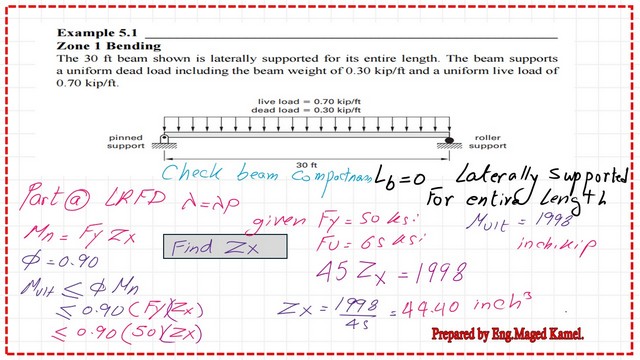 Example 5.1
Zone 1 Bending
The 30 ft beam shown is laterally supported for its entire length. The beam supports
a uniform dead load including the beam weight of 0.30 kip/ft and a uniform live load of
0.70 kip/ft.
live load = 0.70 kip/ft
dead load = 0.30 kip/ft
pinned
support
roller
support
30 ft
Check beam compactnam
Lb=0 Laterally supported
For entire Length
Part ⓐ LRFD λ=λp
given Fy=50 ksi
Fu=65 ksi
Mult = 1998
inch.kip
Mn = Fy Zx
Φ=0.90
Find Zx
Mult ≤ Φ Mn
≤ 0.90 (Fy)(Zx)
≤ 0.90 (50)(Zx)
45 Zx = 1998
Zx = 1998/45 = 44.40 inch³
Prepared by Eng.Maged Kamel.